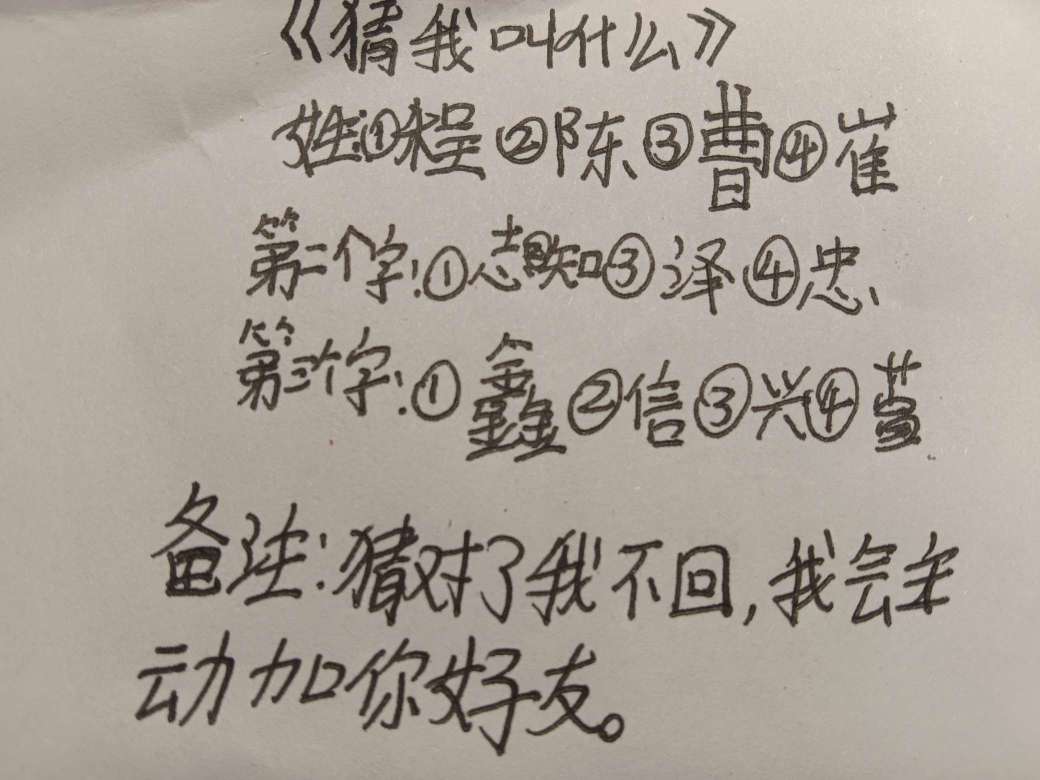 《猜我叫什么》
姓:①程②陈③曹④崔
第二个字:①志②知③泽④忠
第三个字:①鑫②信③兴④
备注:猜对了我不回,我会主
动加你好友。